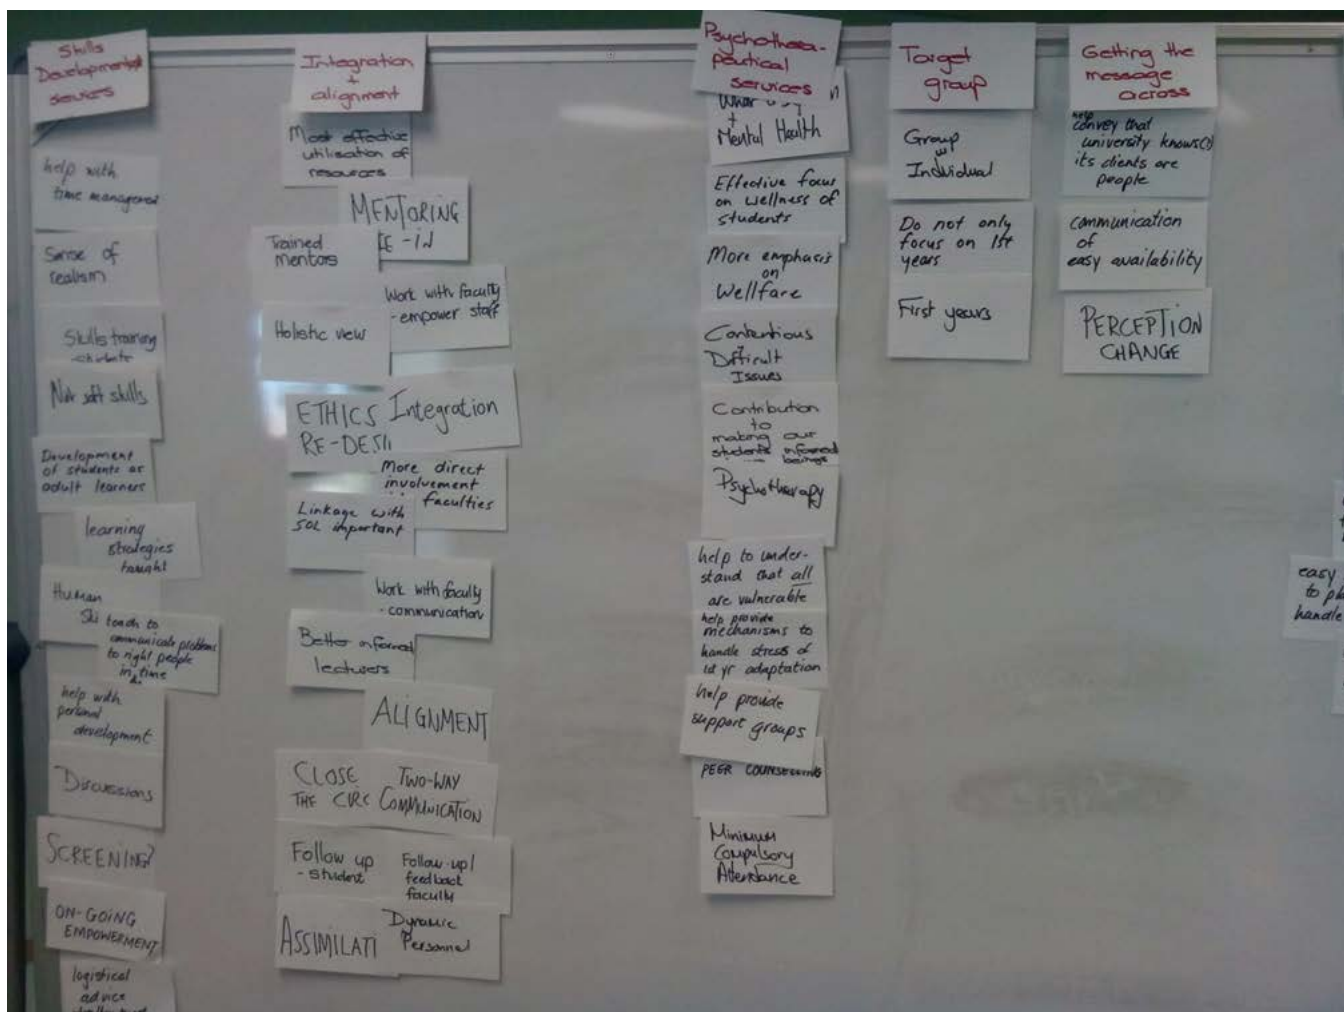 Skills
Development
services
help with
time management
Sense of
realism
Skills training
Not soft skills
Development
of students as
adult learners
learning
strategies
taught
Human
teach to
communicate problems
to right people
in time
help with
personal
development
Discussions
SCREENING?
ON-GOING
EMPOWERMENT
logistical
advice
Integration
+
alignment
Most effective
utilisation of
resources
MENTORING
-IN
Trained
mentors
Work with faculty
- empower staff
Holistic view
ETHICS
RE-DESI
Integration
More direct
involvement
faculties
Linkage with
SOL important
Work with faculty
- communication
Better informed
lecturers
ALIGNMENT
CLOSE
THE CIRC
TWO-WAY
COMMUNICATION
Follow up
- student
Follow-up/
feedback
faculty
ASSIMILATI
Dynamic
Personnel
Psychothera-
peutical
services
+
Mental Health
Effective focus
on wellness of
students
More emphasis
on
Wellfare
Contentious
+
Difficult
Issues
Contribution
to
making our
students informed
beings
Psychotherapy
help to under-
stand that all
are vulnerable
help provide
mechanisms to
handle stress of
1st yr adaptation
help provide
support groups
PEER COUNSELLING
Minimum
Compulsory
Attendance
Target
group
Group
Individual
Do not only
focus on 1st
years
First years
Getting the
message
across
help
convey that
university know(s)
its clients are
people
communication
of
easy availability
PERCEPTION
CHANGE
easy
to pl
handle